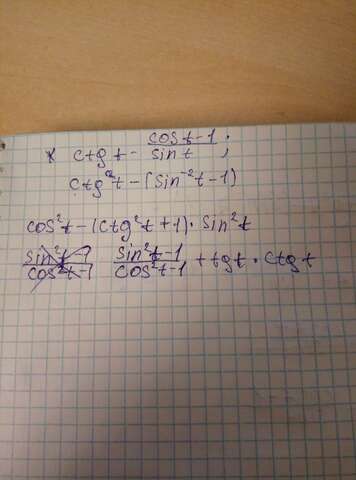 ctg t - cos t - 1 / sin t ;
ctg²t - (sin⁻²t - 1)
cos²t - (ctg²t + 1) · sin²t
sin²t - 1 / cos²t - 1 sin²t - 1 / cos²t - 1 + tg t · ctg t